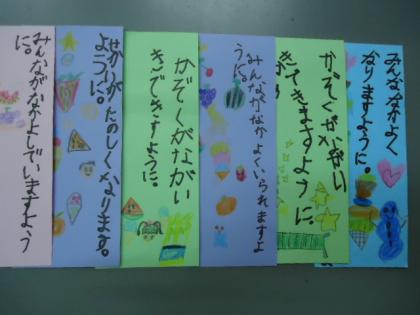 みんななかよく
なりますように。
かぞくがながい
きできますように。
みんながなかよくいられますよ
うに。
かぞくがながい
きできすように。
せかいがたのしくなります。
ように。
みんながなかよしでいますよう
に。